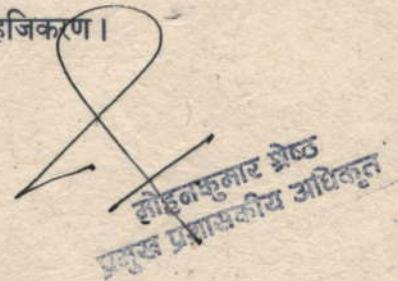 हजिकरण।
मोहनकुमार श्रेष्ठ
प्रमुख प्रशासकीय अधिकृत